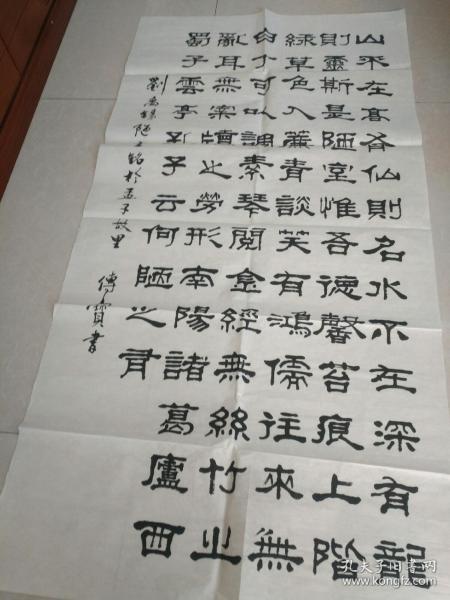 山不在高有仙則名水不在深有龍
則靈斯是陋室惟吾德馨苔痕上階
綠草色入簾青談笑有鴻儒往來無
白丁可以調素琴閱金經無絲竹之
亂耳無案牘之勞形南陽諸葛廬西
蜀子雲亭孔子云何陋之有
劉禹錫陋室銘於孟子故里
傳寶書
孔夫子旧书网
www.kongfz.com